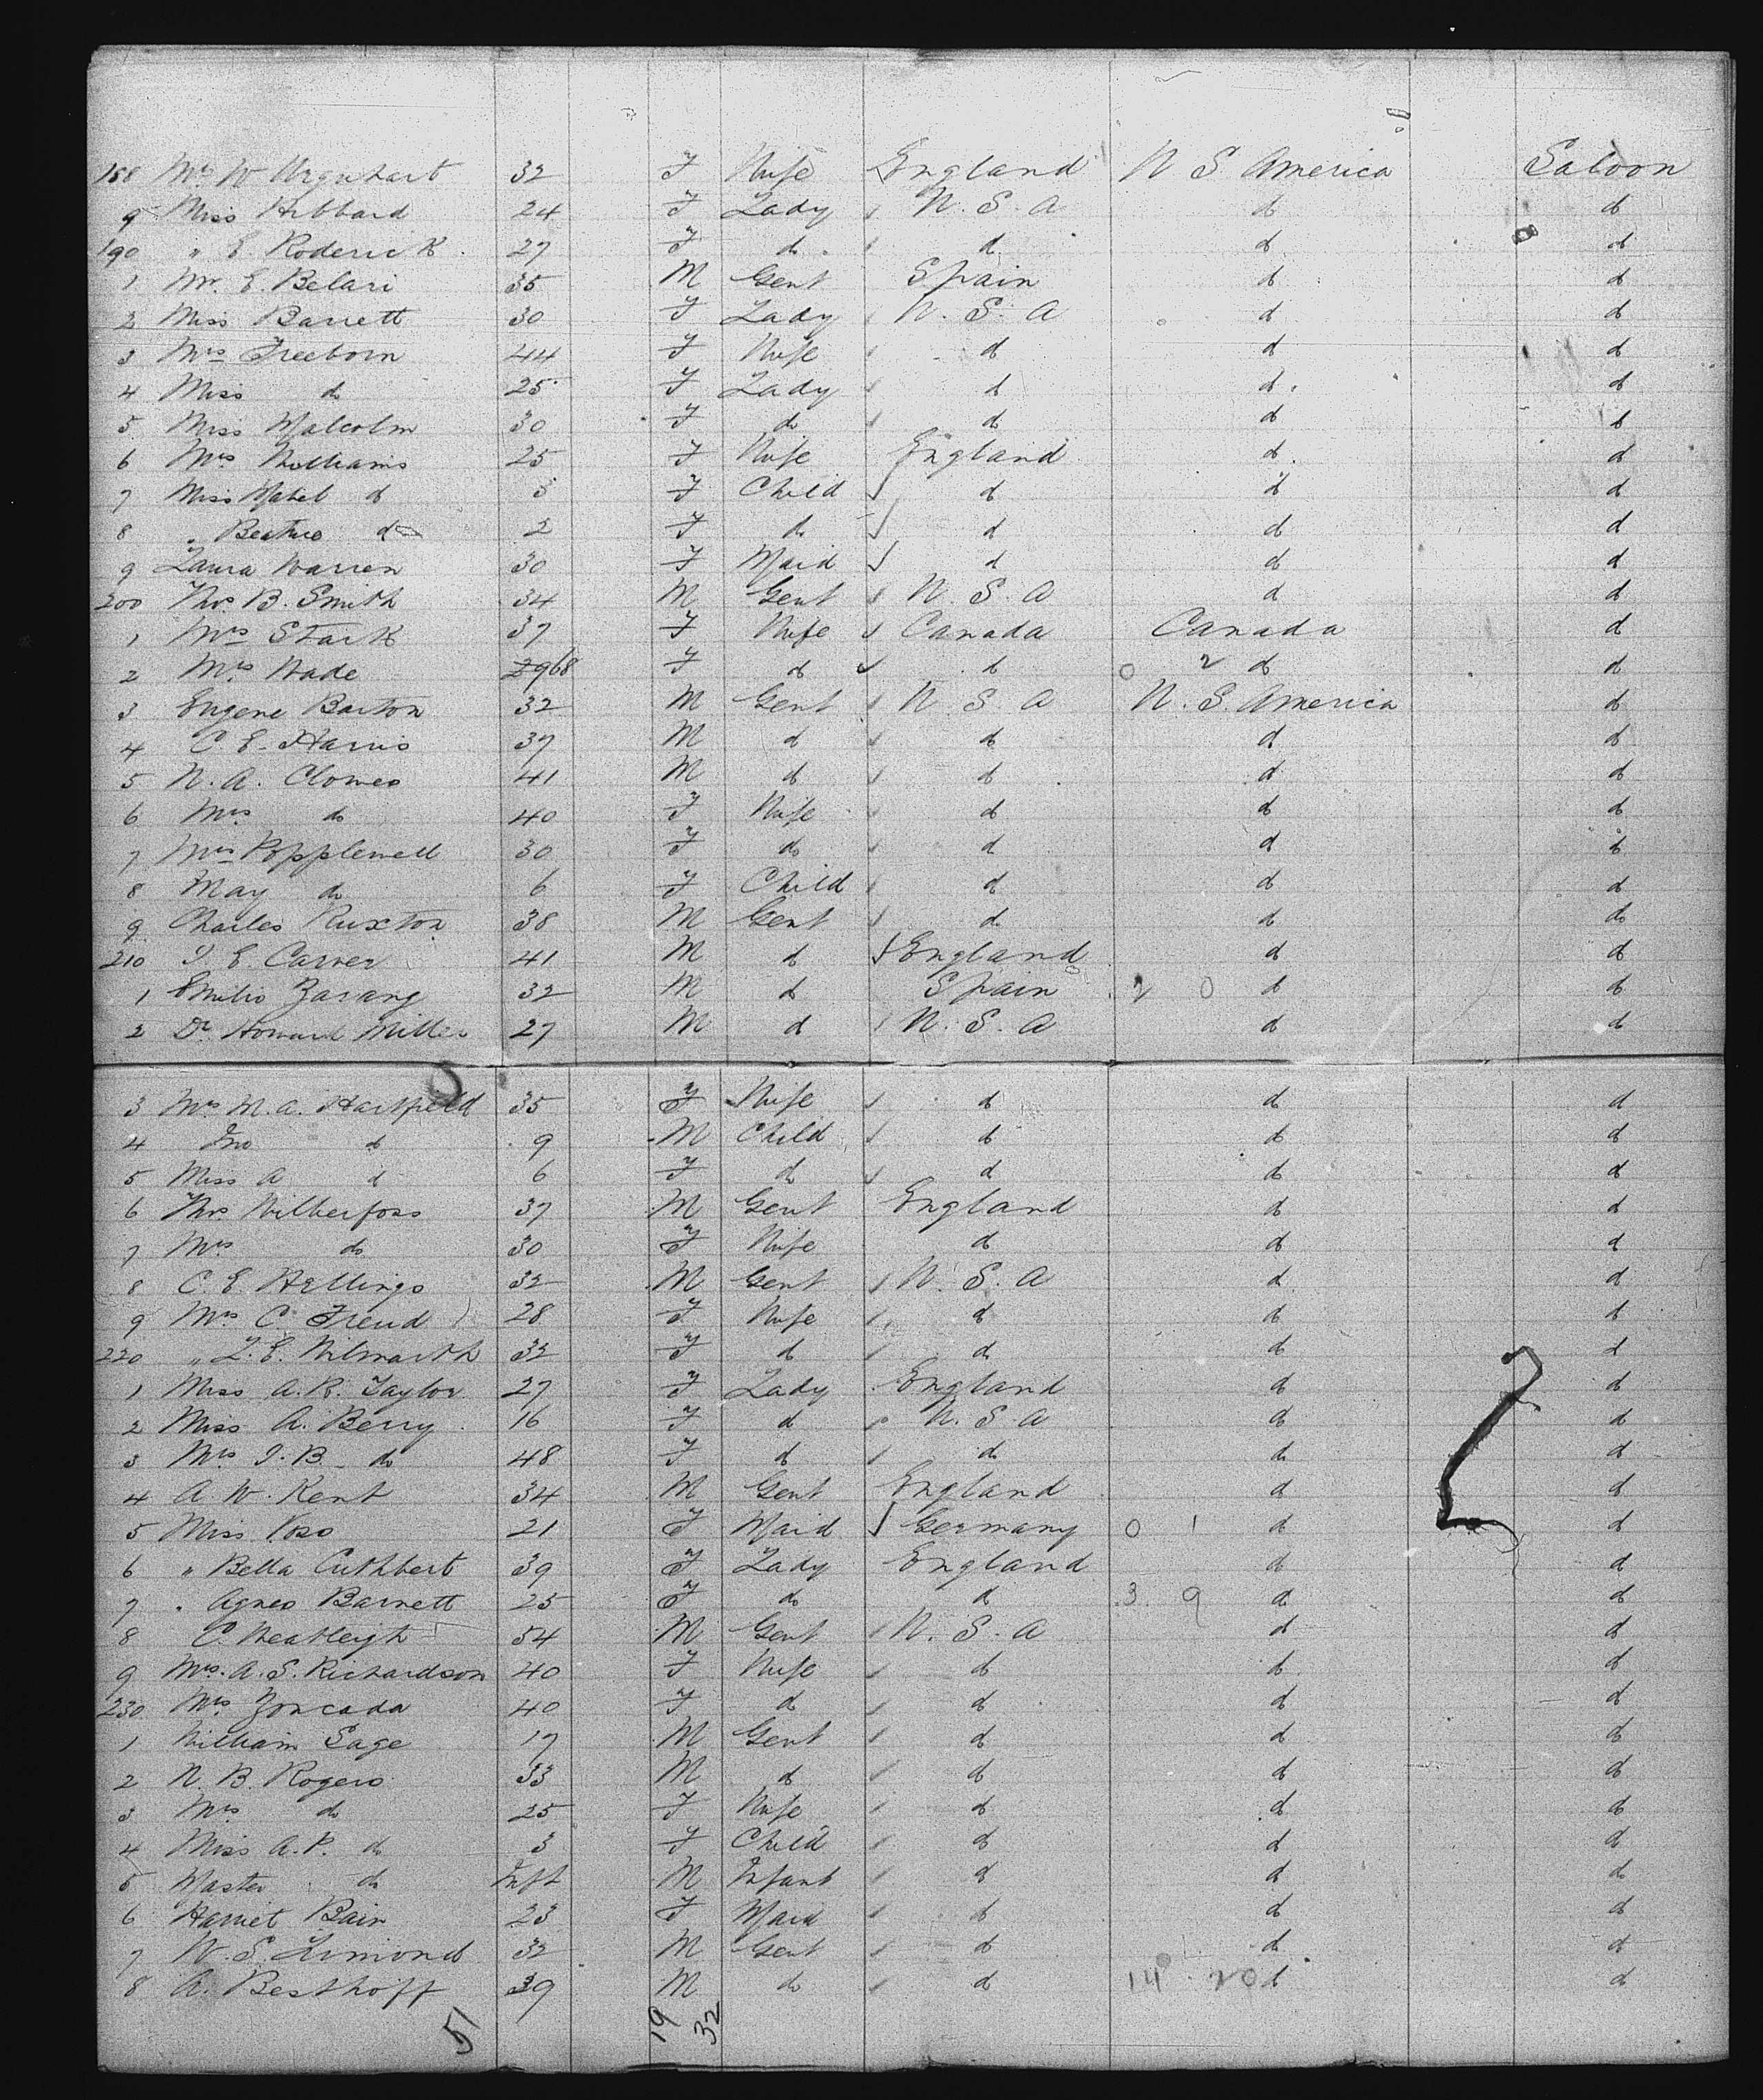 188 Mrs W Urquhart 32 F Wife England U S America Saloon
9 Miss Hibbard 24 F Lady U. S. A do do
190 " E. Roderick 27 F do do do do
1 Mr. E. Belari 35 M Gent Spain do do
2 Miss Barrett 30 F Lady U. S. A do do
3 Mrs Freeborn 44 F Wife do do do
4 Miss do 25 F Lady do do do
5 Miss Malcolm 30 F do do do do
6 Mrs Williams 25 F Wife England do do
7 Miss Mabel do 3 F Child do do do
8 " Beatrice do 2 F do do do do
9 Laura Warren 30 F Maid do do do
200 Thos B. Smith 34 M Gent U. S. A do do
1 Mrs Stark 37 F Wife Canada Canada do
2 Mrs Wade 68 F do do 0 2 do do
3 Eugene Barton 32 M Gent U. S. A U. S. America do
4 C. E. Harris 37 M do do do do
5 N. A. Clowes 41 M do do do do
6 Mrs do 40 F Wife do do do
7 Mrs Popplewell 30 F do do do do
8 May do 6 F Child do do do
9 Charles Ruxton 38 M Gent do do do
210 J. E. Carver 41 M do England do do
1 Emilio Zarang 32 M do Spain 2 0 do do
2 Dr. Howard Miller 27 M do U. S. A do do
3 Mrs M. A. Hartfield 35 F Wife do do do
4 Jno do 9 M Child do do do
5 Miss A do 6 F do do do do
6 Thos Wilberfoss 37 M Gent England do do
7 Mrs do 30 F Wife do do do
8 C. E. Hellings 32 M Gent U. S. A do do
9 Mrs C. Freud 28 F Wife do do do
220 " L. E. Wilmarth 32 F do do do do
1 Miss A. R. Taylor 27 F Lady England do do
2 Miss A. Berry 16 F do U. S. A do do
3 Mrs J. B. do 48 F do do do do
4 A. W. Kent 34 M Gent England do do
5 Miss Voso 21 F Maid Germany 0 1 do do
6 " Bella Cuthbert 39 F Lady England do do
7 " Agnes Barnett 25 F do do 3 9 do do
8 C. Weatleigh 54 M Gent U. S. A do do
9 Mrs. A. S. Richardson 40 F Wife do do do
230 Mrs Zoncada 40 F do do do do
1 William Sage 17 M Gent do do do
2 N. B. Rogers 33 M do do do do
3 Mrs do 25 F Wife do do do
4 Miss A. P. do 3 F Child do do do
5 Master do Inft M Infant do do do
6 Harriet Bain 23 F Maid do do do
7 W. S. Limond 32 M Gent do do do
8 A. Besthoff 39 M do do 14 20 do do
51 19 32